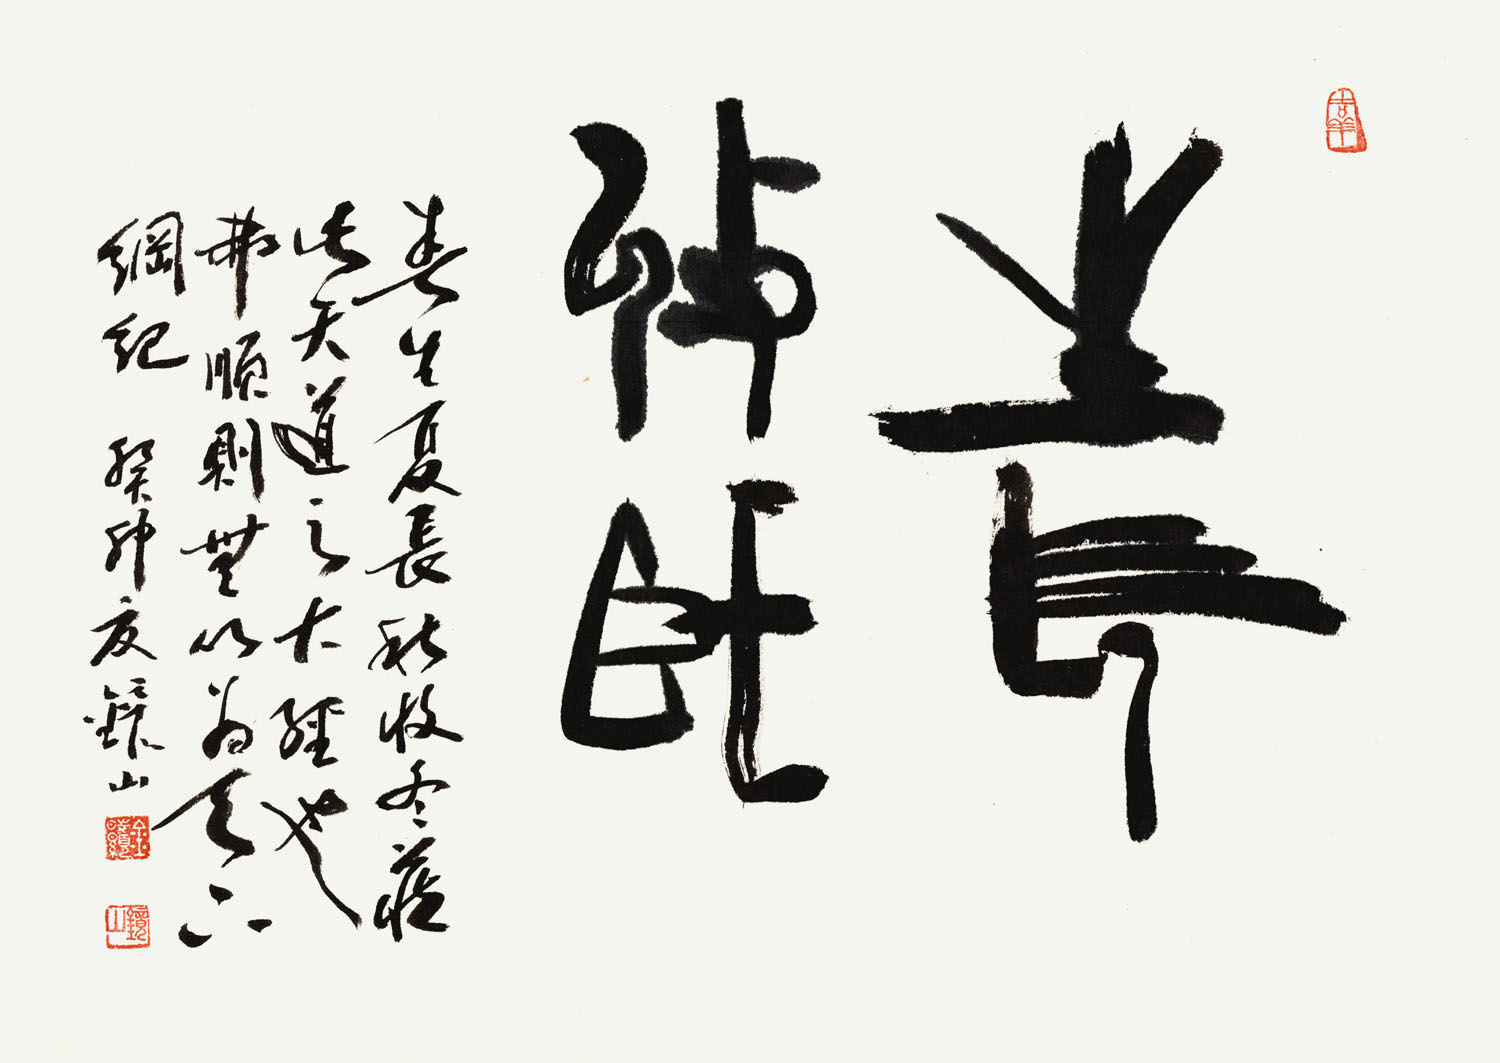 吉羊
生長
收臧
春生夏長秋收冬藏
此天道之大經也
弗順則無以為天下
綱紀 癸卯夏鏡山
鏡山